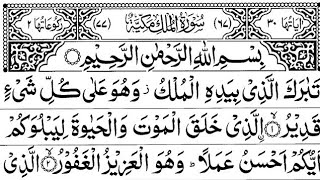 اٰیَاتُهَا ۳۰ (۶۷) سُوْرَةُ الْمُلْكِ مَكِّیَّةٌ (۷۷) رُكُوْعَاتُهَا ۲
بِسْمِ اللّٰهِ الرَّحْمٰنِ الرَّحِیْمِ
تَبٰرَكَ الَّذِیْ بِیَدِهِ الْمُلْكُ ز وَهُوَ عَلٰی كُلِّ شَیْءٍ
قَدِیْرُ ۙ۝۱ الَّذِیْ خَلَقَ الْمَوْتَ وَالْحَیٰوةَ لِیَبْلُوَكُمْ
اَیُّكُمْ اَحْسَنُ عَمَلًا ؕ وَهُوَ الْعَزِیْزُ الْغَفُوْرُ ۙ۝۲ الَّذِیْ